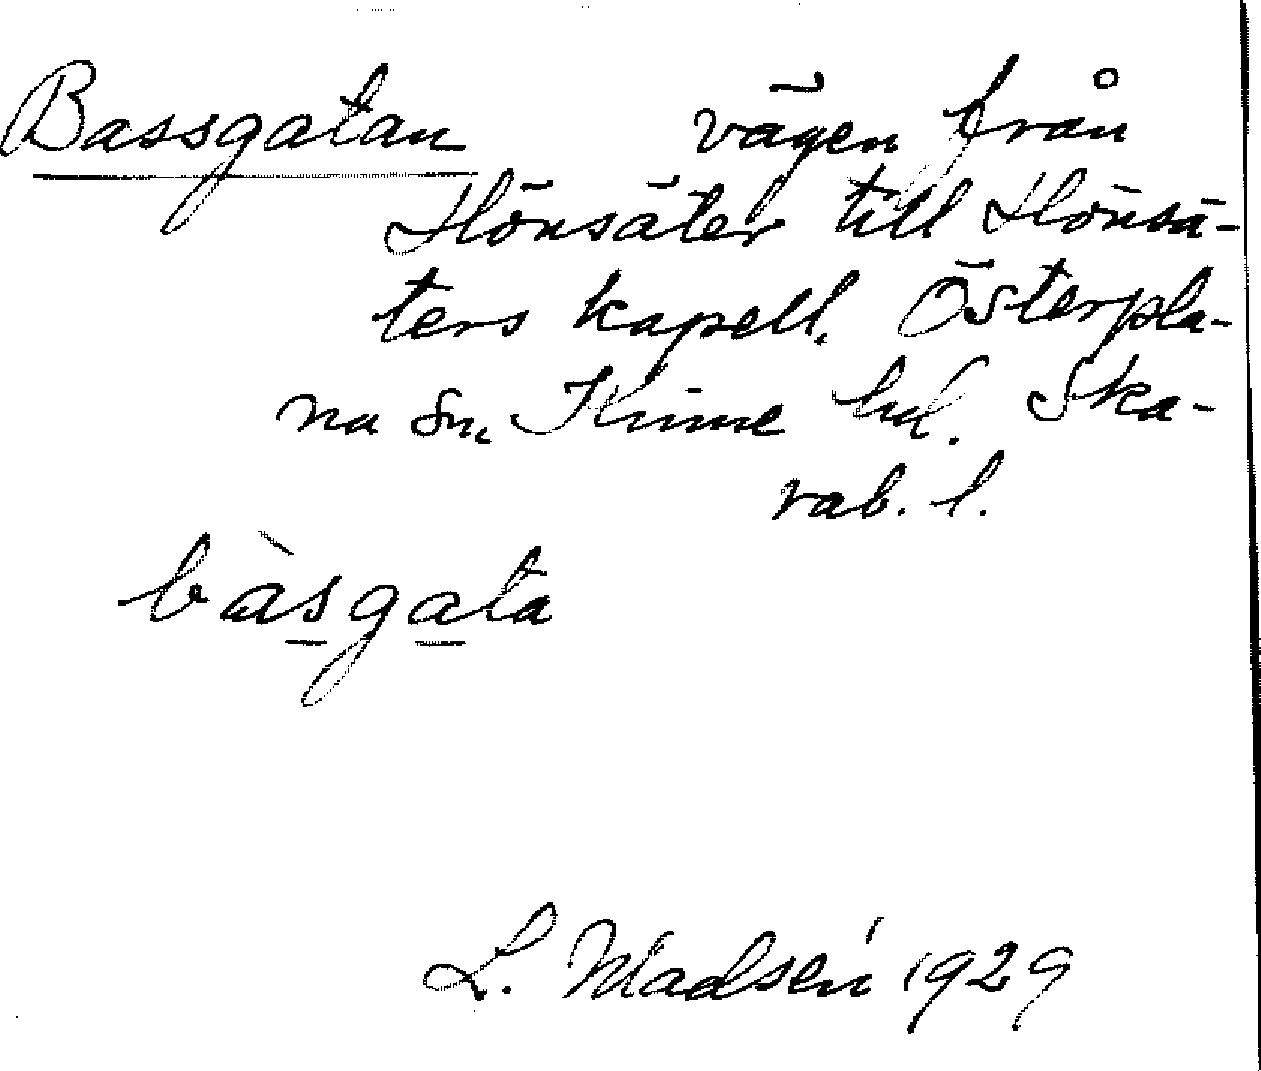 Bassgatan vägen från
Hönsäter till Hönsä-
ters kapell. Österpla-
na sn. Kinne hd. Ska-
rab. l.
bàsgata
L. Madsén 1929